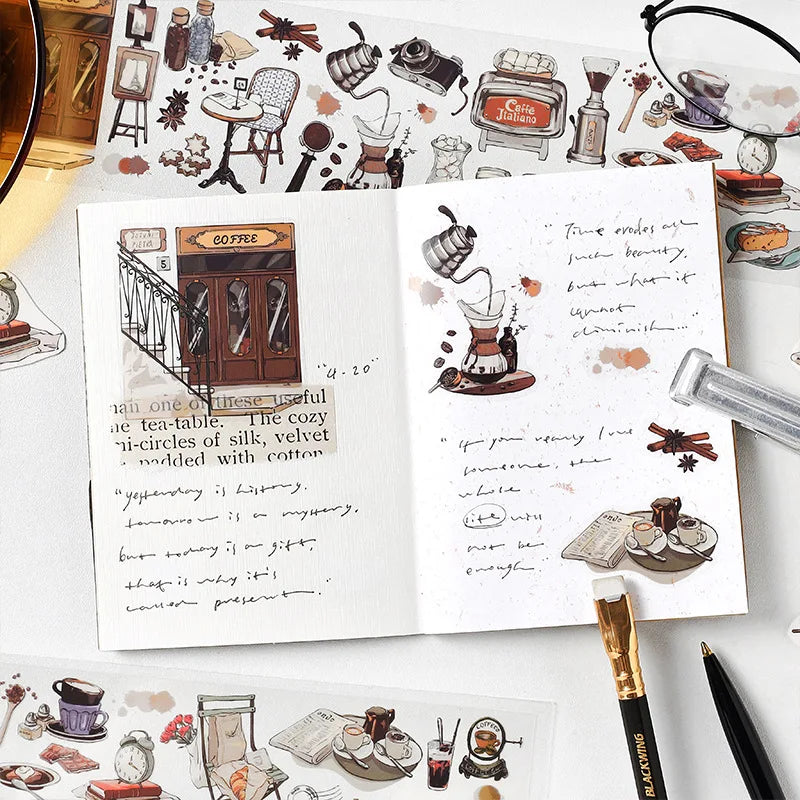 Caffè
Italiano
COFFEE
5
"4-20"
man one of these useful
he tea-table. The cozy
mi-circles of silk, velvet
padded with cotton
"yesterday is history.
tomorrow is a mystery.
but today is a gift.
that is why it's
called present."
"Time erodes all
such beauty,
but what it
cannot
diminish..."
"if you really love
someone, the
whole
life will
not be
enough.
BLACKWING
COFFEE